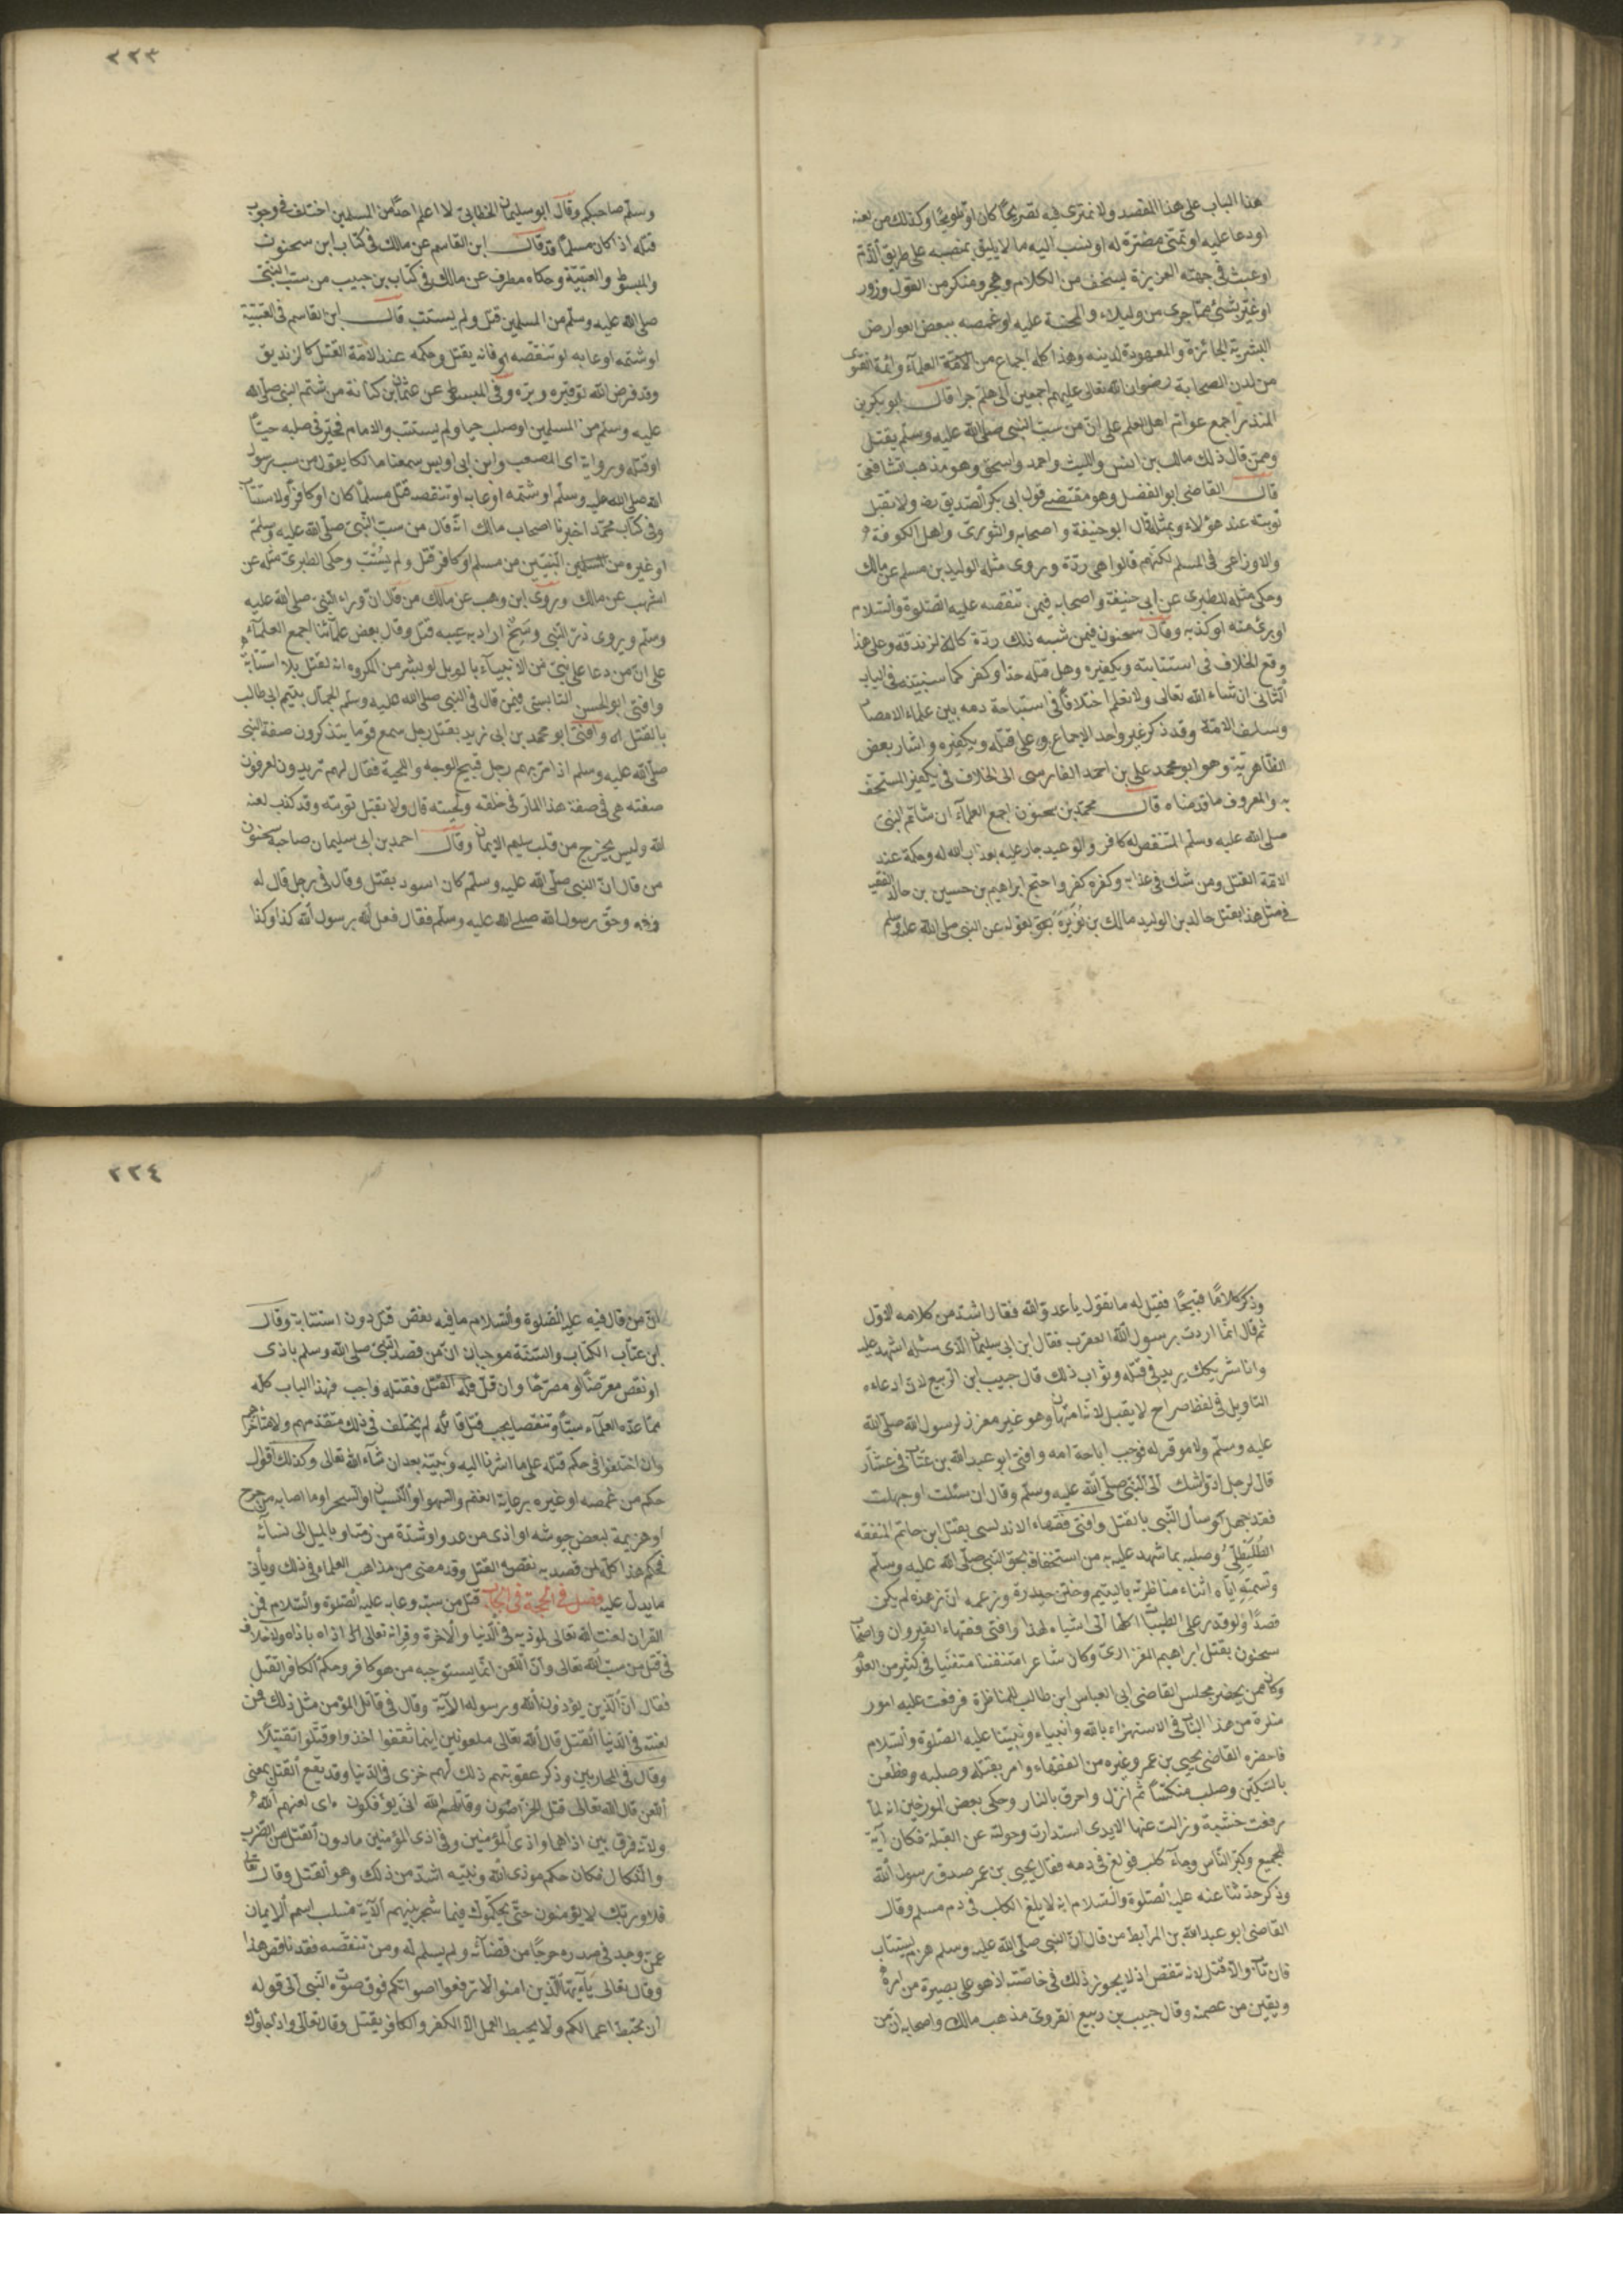 هذا الباب على هذا المقصد ولا نمترى فيه تصريحًا كان او تلويحًا وكذلك من لعنه
او دعا عليه او تمنى مضرّة له او نسب اليه ما لا يليق بمنصبه على طريق الذّم
او عبث فى جهته العزيزة بسخف من الكلام وهجر ومنكر من القول وزور
او غيّر بشئ ممّا جرى من البلاء والمحنة عليه او غمصه ببعض العوارض
البشرية الجائزة والمعهودة لديه وهذا كله اجماع من الامّة العلمآء وائمّة الفتوى
من لدن الصحابة رضوان الله تعالى عليهم اجمعين الى هلمّ جرا قال ابو بكر بن
المنذر اجمع عوامّ اهل العلم على انّ من سبّ النبى صلى الله عليه وسلّم يقتل
وممّن قال ذلك مالك بن انس والليث واحمد واسحق وهو مذهب الشافعى
قال القاضى ابو الفضل وهو مقتضى قول ابى بكر الصّديق رضه ولا تقبل
توبته عند هؤلاء وبمثله قال ابو حنيفة واصحابه والثورىّ واهل الكوفة
والاوزاعى فى المسلم لكنّهم قالوا هى ردّة وروى مثله الوليد بن مسلم عن مالك
وحكى مثله الطبرى عن ابى حنيفة واصحابه فيمن تنقصه عليه الصّلوة والسّلام
او برئ منه او كذبه وقال سحنون فيمن سبه ذلك ردّة كالزندقة وعلى هذا
وقع الخلاف فى استتابته وتكفيره وهل قتله حدّ او كفر كما سنبيّنه فى الباب
الثانى ان شاء الله تعالى ولا نعلم اختلافًا فى استباحة دمه بين علماء الامصار
وسلف الامّة وقد ذكر غير واحد الاجماع على قتله وتكفيره واشار بعض
الظّاهريّة وهو ابو محمد على بن احمد الفارسى الى الخلاف فى تكفير المستخف
به والمعروف ما قدمناه قال محمّد بن سحنون اجمع العلمآء ان شاتم النبىّ
صلى الله عليه وسلّم المتنقص له كافر والوعيد جار عليه بعذاب الله له وحكمه عند
الامّة القتل ومن شك فى عذابه وكفره كفر واحتج ابراهيم بن حسين بن خالد الفقيه
فى مثل هذا بقتل خالد بن الوليد مالك بن نُوَيْرَة بقوله عن النبى صلى الله عليه وسلم
٢٢٣
وسلّم صاحبكم وقال ابو سليمان الخطابىّ لا اعلم احدًا من المسلمين اختلف فى وجوب
قتله اذا كان مسلمًا قد قال ابن القاسم عن مالك فى كتاب ابن سحنون
والمبسوط والعتبيّة وحكاه مطرف عن مالك فى كتاب بن حبيب من سبّ النبى
صلى الله عليه وسلّم من المسلمين قتل ولم يستتب قال ابن القاسم فى العتبيّة
او شتمه او عابه او تنقّصه فانه يقتل وحكمه عند الامّة القتل كالزنديق
وقد فرض الله توقيره وبرّه وفى المبسوط عن عثمان بن كنانة من شتم النبى صلى الله
عليه وسلّم من المسلمين قتل او صلب حيا ولم يستتب والامام مخيّر فى صلبه حيًّا
او قتله ورواية ابى المصعب وابن ابى اويس سمعنا مالكا يقول من سب رسول
الله صلى الله عليه وسلّم او شتمه او عابه او تنقصه قتل مسلمًا كان او كافرًا ولا يستتاب
وفى كتاب محمّد اخبرنا اصحاب مالك انّه قال من سبّ النّبىّ صلّى الله عليه وسلّم
او غيره من النبيّين من مسلم او كافر قتل ولم يُستتب وحكى الطبرىّ مثله عن
اشهب عن مالك وروى ابن وهب عن مالك من قال انّ رداء النبى صلى الله عليه
وسلّم ويروى زرّ النّبى وَسِخٌ اراد به عيبه قتل وقال بعض علمآئنا اجمع العلمآء
على انّ من دعا على نبىّ من الانبيآء بالويل او بشئ من المكروه انه يقتل بلا استتابة
وافتى ابو الحسن القابسى فيمن قال فى النبى صلى الله عليه وسلّم الجمّال يتيم ابى طالب
بالقتل وافتى ابو محمد بن ابى زيد بقتل رجل سمع قوما يتذكرون صفة النبى
صلّى الله عليه وسلم اذ مرّ بهم رجل قبيح الوجه واللّحية فقال لهم تريدون تعرفون
صفته هى فى صفة هذا المارّ فى خلقه ولحيته قال ولا تقبل توبته وقد كذب لعنه
الله وليس يخرج من قلب سليم الايمان وقال احمد بن ابى سليمان صاحب سحنون
من قال انّ النبى صلّى الله عليه وسلّم كان اسود يقتل وقال فى رجل قال له
وحقّ رسول الله صلى الله عليه وسلّم فقال فعل الله برسول الله كذا وكذا
وذكر كلامًا قبيحًا فقيل له ما تقول يا عدوّ الله فقال اشدّ من كلامه الاوّل
ثمّ قال انّما اردت برسول الله العقرب فقال ابن ابى سليمان الذى سئله اشهد عليه
وانا شريكك يريد فى قتله وثواب ذلك قال حبيب ابن الرّبيع لانّ ادعاءه
التاويل فى لفظ صراح لا يقبل لانّه امتهان وهو غير معزز لرسول الله صلّى الله
عليه وسلّم ولا موقر له فوجب اباحة دمه وافتى ابو عبد الله بن عتاب فى عشّار
قال لرجل ادّ واشك الى النّبى صلّى الله عليه وسلّم وقال ان سئلت او جهلت
فقد جهل وسأل النّبى بالقتل وافتى فقهاء الاندلس بقتل ابن حاتم المتفقه
الطُّلَيطِلِىّ وصلبه بما شهد عليه به من استخفافه بحق النّبى صلّى الله عليه وسلّم
وتسميَته ايّاه اثناء مناظرته باليتيم وختن حيدرة وزعمه انّ زهده لم يكن
قصدًا ولو قدر على الطيّبات اكلها الى اشياء لهذا وافتى فقهاء القيروان واصحاب
سحنون بقتل ابراهيم الفزارىّ وكان شاعرا متفننا فى كثير من العلوم
وكان ممن يحضر مجلس القاضى ابى العباس ابن طالب للمناظرة فرفعت عليه امور
منكرة من هذا الباب فى الاستهزاء بالله وانبياء ونبيّنا عليه الصّلوة والسّلام
فاحضره القاضى يحيى بن عمر وغيره من الفقهاء وامر بقتله وصلبه فطُعن
بالسّكّين وصلب منكّسًا ثم انزل واحرق بالنار وحكى بعض المورخين انه لمّا
رفعت خشبته وزالت عنها الايدى استدارت وحولته عن القبلة فكان آية
للجميع وكبّر النّاس وجآء كلب فولغ فى دمه فقال يحيى بن عمر صدق رسول الله
وذكر حديثا عنه عليه الصّلوة والسّلام انه لا يلغ الكلب فى دم مسلم وقال
القاضى ابو عبد الله بن المرابط من قال انّ النبى صلّى الله عليه وسلم هزم يستتاب
فان تاب والّا قتل لانه تنقص اذ لا يجوز ذلك فى خاصّته اذ هو على بصيرة من امره
ويقين من عصمته وقال حبيب بن ربيع القروىّ مذهب مالك واصحابه انّ من
٢٢٤
انّ من قال فيه عليه الصّلوة والسّلام ما فيه نقص قتل دون استتابة وقال
ابن عتّاب الكتاب والسّنّة موجبان انّ من قصد النّبىّ صلى الله وسلم باذى
او نقص معرّضًا او مصرّحًا وان قلّ فقتله واجب فهذا الباب كلّه
ممّا عدّه العلمآء سبًّا وتنقصا يجب قتل قائله لم يختلف فى ذلك متقدّمهم ولا متأخّرهم
وان اختلفوا فى حكم قتله على ما اشرنا اليه ونبيّنه بعد ان شآء الله تعالى وكذلك اقول
حكم من غمصه او غيره برعاية الغنم والسّهو او النّسيان او السّحر او ما اصابه من جرح
او هزيمة لبعض جيوشه او اذى من عدوّ او شدّة من زمنه او بالميل الى نسآئه
فحكم هذا كلّه لمن قصد به نقصه القتل وقد مضى من مذاهب العلماء فى ذلك ويأتى
ما يدل عليه فصل فى الحجّة فى ايجاب قتل من سبّه وعابه عليه الصّلوة والسّلام فمن
القران لعنة الله تعالى لموذيه فى الدّنيا والاخرة وقرانه تعالى اذاه باذاه ولا خلاف
فى قتل من سبّ الله تعالى وانّ اللّعن انّما يستوجبه من هو كافر وحكم الكافر القتل
فقال انّ الّذين يؤذون الله ورسوله الآية وقال فى قاتل المؤمن مثل ذلك فمن
لعنته فى الدّنيا القتل قال الله تعالى ملعونين اينما ثقفوا اخذوا وقتّلوا تقتيلًا
وقال فى المحاربين وذكر عقوبتهم ذلك لهم خزى فى الدّنيا وقد يقع القتل بمعنى
اللّعن قال الله تعالى قتل الخرّاصون وقاتلهم الله انّى يؤفكون اى لعنهم الله
ولانّه فرق بين اذاهما واذى المؤمنين وفى اذى المؤمنين ما دون القتل من الضّرب
والنّكال فكان حكم موذى الله ونبيّه اشدّ من ذلك وهو القتل وقال تعالى
فلا وربّك لا يؤمنون حتّى يحكّموك فيما شجر بينهم الآية فسلب اسم الايمان
عمّن وجد فى صدره حرجًا من قضآئه ولم يسلم له ومن تنقّصه فقد ناقض هذا
وقال تعالى يآءيّها الّذين امنوا لا ترفعوا اصواتكم فوق صوت النّبى الى قوله
ان تحبط اعمالكم ولا يحبط العمل الّا الكفر والكافر يقتل وقال تعالى واذا جاؤك